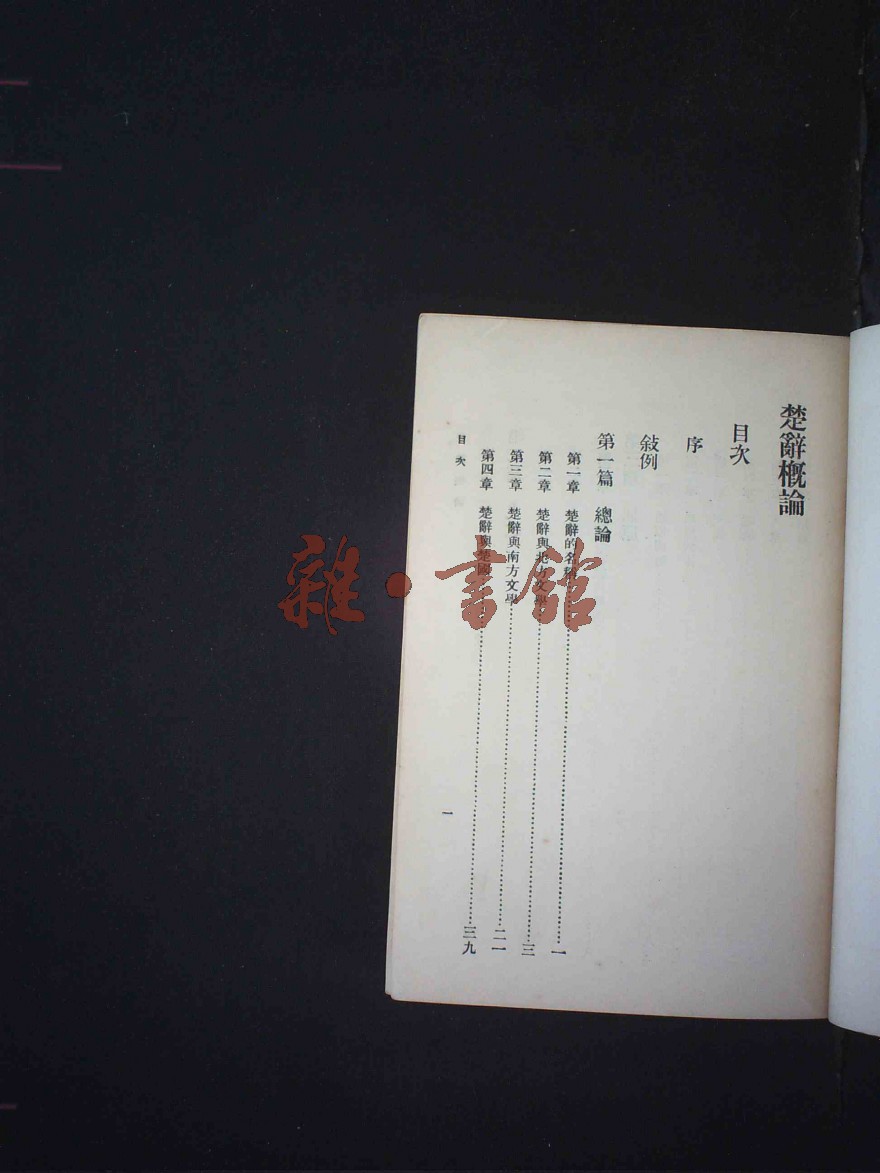 楚辭概論
目次
序
敍例
第一篇 總論
第一章 楚辭的名稱……一
第二章 楚辭與北方文學……三
第三章 楚辭與南方文學……二一
第四章 楚辭與楚國……三九
目次
一
雜·書館